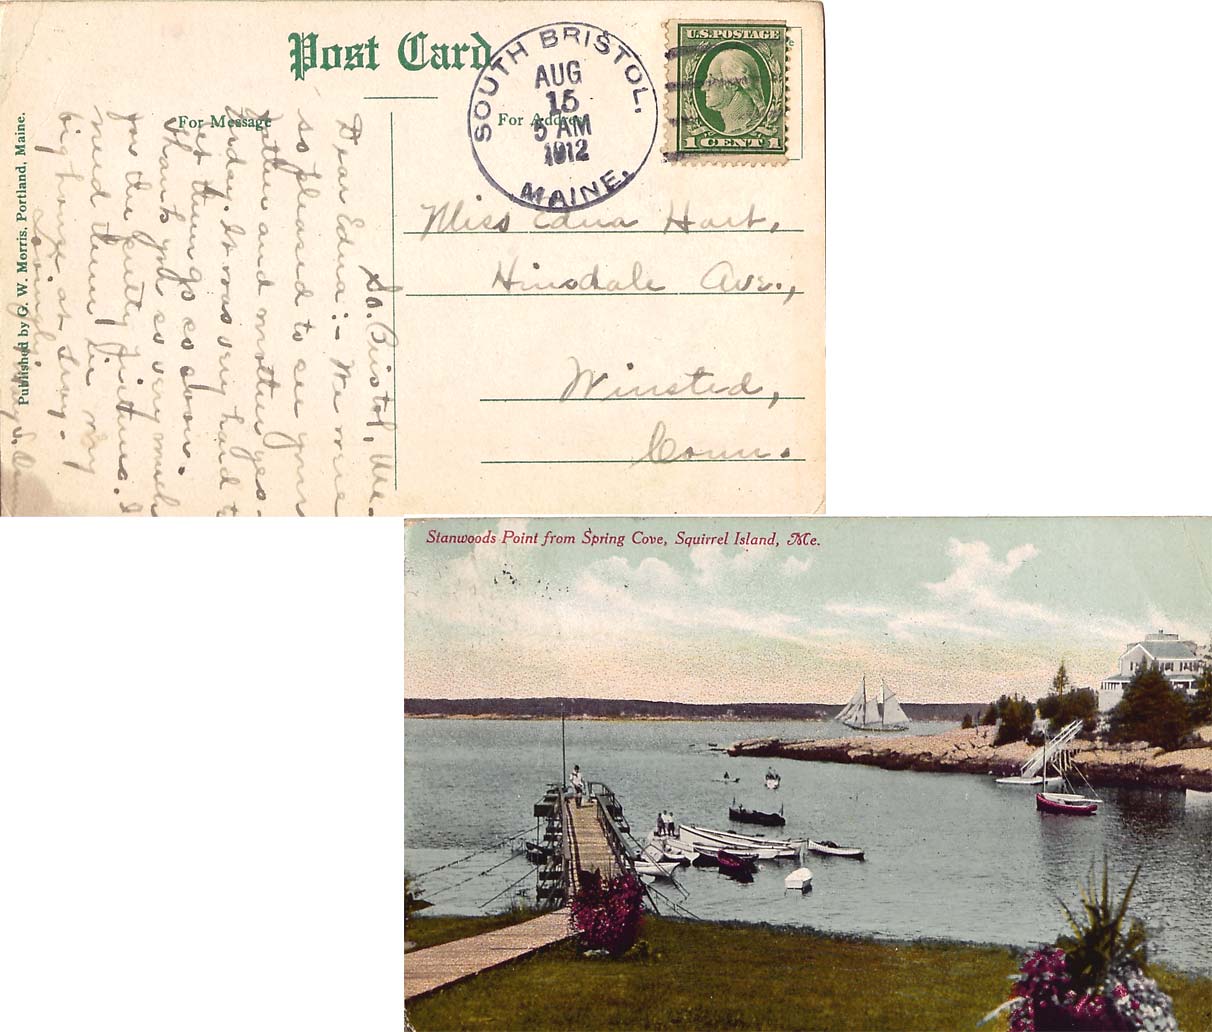 Post Card
For Message
For Address
SOUTH BRISTOL,
AUG
15
5 AM
1912
MAINE.
U.S. POSTAGE
1 CENT 1
Miss Edna Hart,
Hinsdale Ave.,
Winsted,
Conn.
So. Bristol, Me.
Dear Edna:- We were
so pleased to see your
father and mother yes-
terday. It was very hard to
let them go so soon.
Thank you so very much
for the pretty pictures. I
need them in my
big house at
Lovingly,
Published by G. W. Morris, Portland, Maine.
Stanwoods Point from Spring Cove, Squirrel Island, Me.